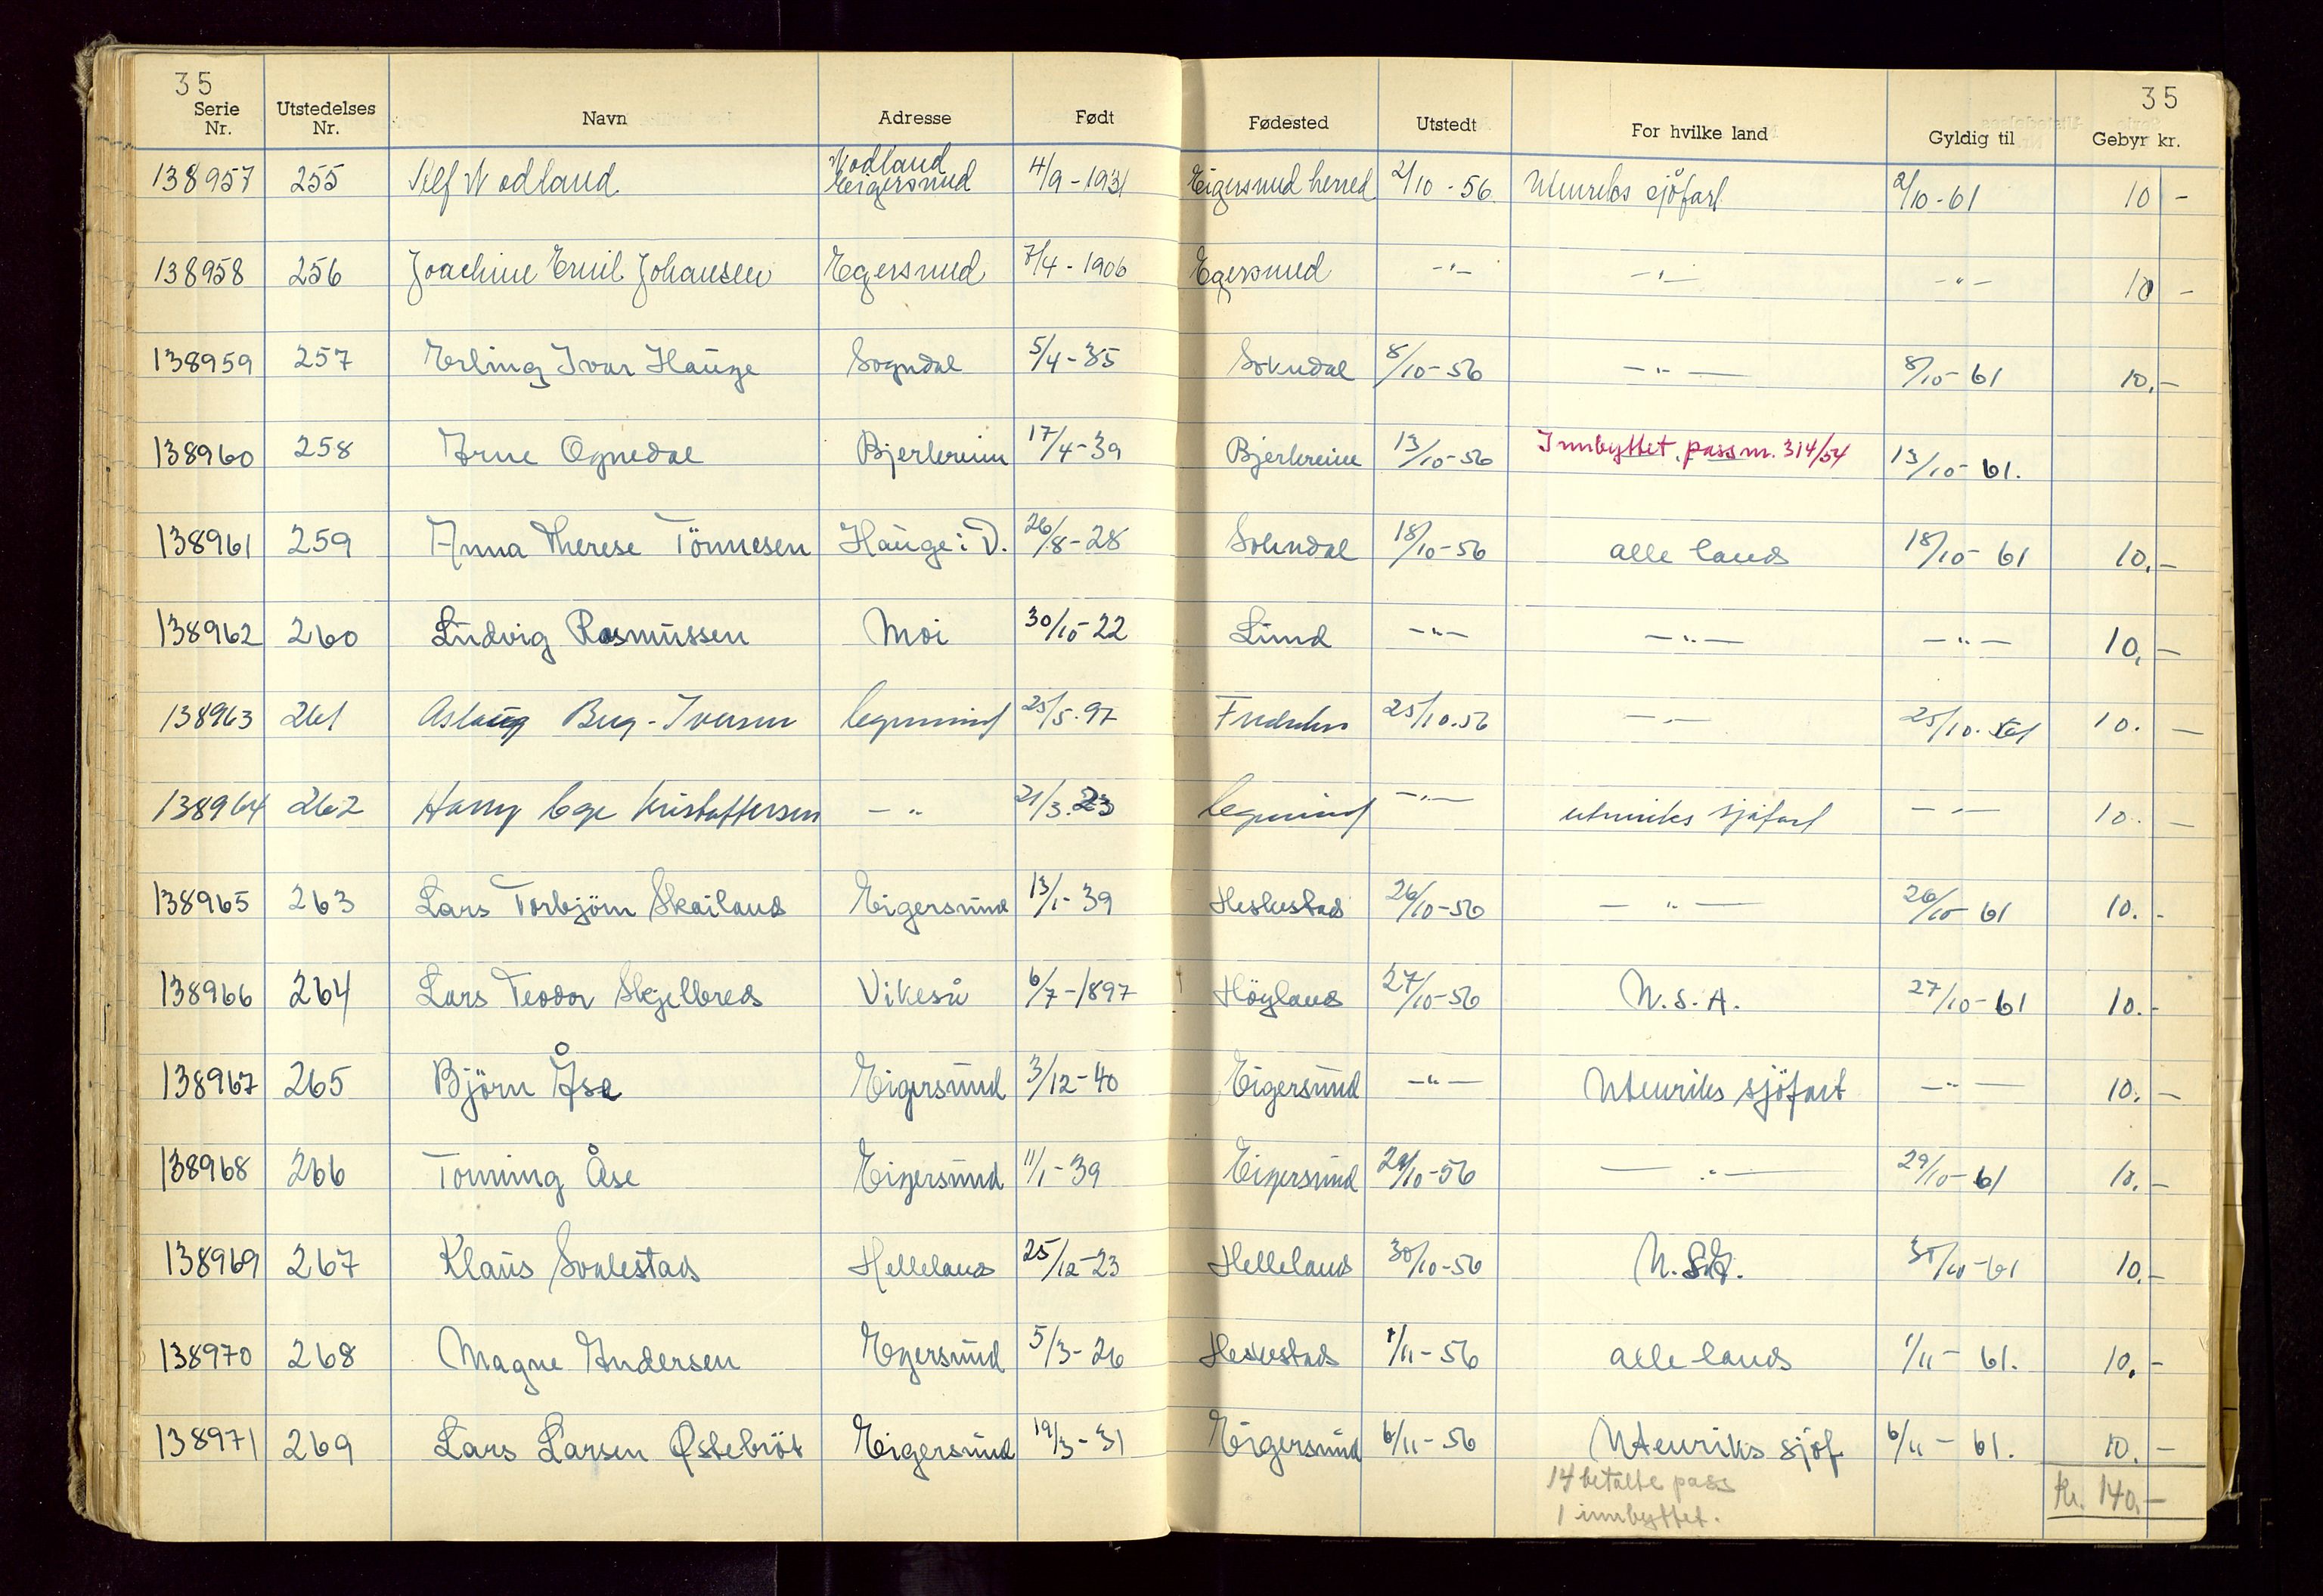 35 35
Serie Nr. Utstedelses Nr. Navn Adresse Født Fødested Utstedt For hvilke land Gyldig til Gebyr kr.
138957 255 Alf Nodland Nodland Eigersund 4/9-1931 Eigersund herred 2/10-56. Utenriks sjøfart 2/10-61 10 -
138958 256 Joachim Emil Johansen Egersund 7/4-1906 Egersund -"- -"- -"- 10 -
138959 257 Erling Ivar Hauge Sogndal 5/4-35 Sokndal 8/10-56 -"- 8/10-61 10.-
138960 258 Arne Ognedal Bjerkreim 17/4-39 Bjerkreim 13/10-56 Innbyttet pass nr. 314/54 13/10-61.
138961 259 Anna Therese Tönnesen Hauge i D. 26/8-28 Sokndal 18/10-56 alle land 18/10-61 10.-
138962 260 Ludvig Rasmussen Moi 30/10-22 Lund -"- -"- -"- 10,-
138963 261 Aslaug Berg-Iversen Egersund 25/5.97 25/10.56 -"- 25/10.61 10. -
138964 262 Harry Ege Kristoffersen -"- 21/3.23 Egersund -"- utenriks sjøfart -"- 10. -
138965 263 Lars Torbjörn Skailand Eigersund 13/1-39 Heskestad 26/10-56 -"- 26/10-61 10.-
138966 264 Lars Teodor Skjelbred Vikeså 6/7-1897 Höyland 27/10-56 U.S.A. 27/10-61 10.-
138967 265 Björn Åse Eigersund 3/12-40 Eigersund -"- Utenriks sjöfart -"- 10.-
138968 266 Tonning Åse Eigersund 11/1-39 Eigersund 29/10-56 -"- 29/10-61 10.-
138969 267 Klaus Svalestad Helleland 25/12-23 Helleland 30/10-56 U.S.A. 30/10-61 10.-
138970 268 Magne Andersen Egersund 5/3-26 Heskestad 1/11-56 alle land 1/11-61. 10.-
138971 269 Lars Larsen Østebröt Eigersund 19/3-31 Eigersund 6/11-56 Utenriks sjöf. 6/11-61. 10.-
14 betalte pass Kr. 140,-
1 innbyttet.